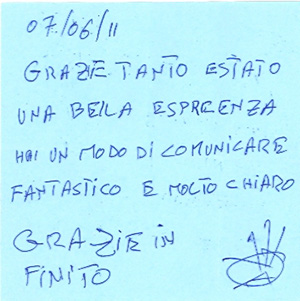 07/06/11
GRAZIE TANTO ESTATO
UNA BELLA ESPREENZA
HAI UN MODO DI COMUNICARE
FANTASTICO E MOLTO CHIARO
GRAZIE IN
FINITO